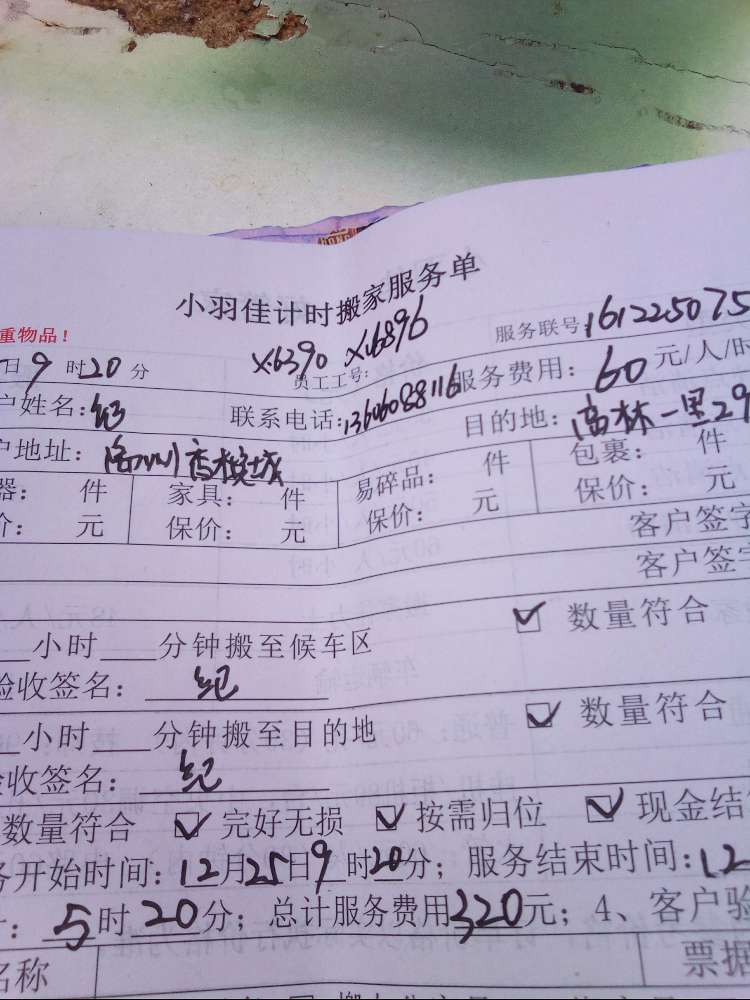 小羽佳计时搬家服务单
重物品！
服务联号:161225075
日9时20分 X6390 X16896
员工工号: 服务费用: 60元/人/时
户姓名:纪 联系电话:13606088116 目的地: 高林一里29
户地址:
器: 件 家具: 件 易碎品: 件 包裹: 件
价: 元 保价: 元 保价: 元 保价: 元
客户签字
客户签字
小时 分钟搬至候车区 数量符合
验收签名: 纪
小时 分钟搬至目的地 数量符合
验收签名: 纪
数量符合 完好无损 按需归位 现金结
务开始时间:12月25日9时20分；服务结束时间:12
:5时20分；总计服务费用320元；4、客户验
名称 票据